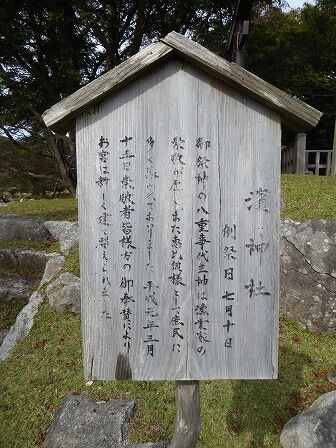 濱神社
例祭日七月十日
御祭神の八重事代主神は漁業家の
崇敬が厚くまた恵比須様として庶民に
多く慕われてまいりました 平成元年三月
十五日崇敬者皆様方の御奉賛により
お宮は新しく建て替えられました